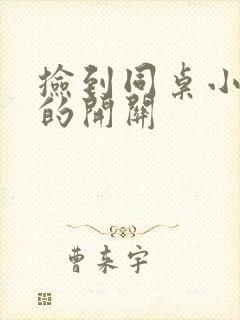 撿到同桌小
的開關
曹來宇